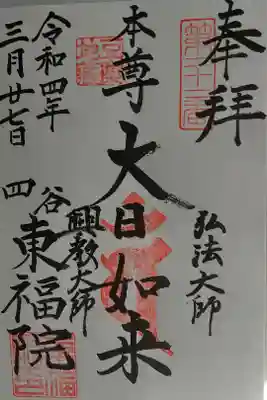 奉拝
弘法大師
本尊大日如来
興教大師
令和四年
三月廿七日
四谷東福院